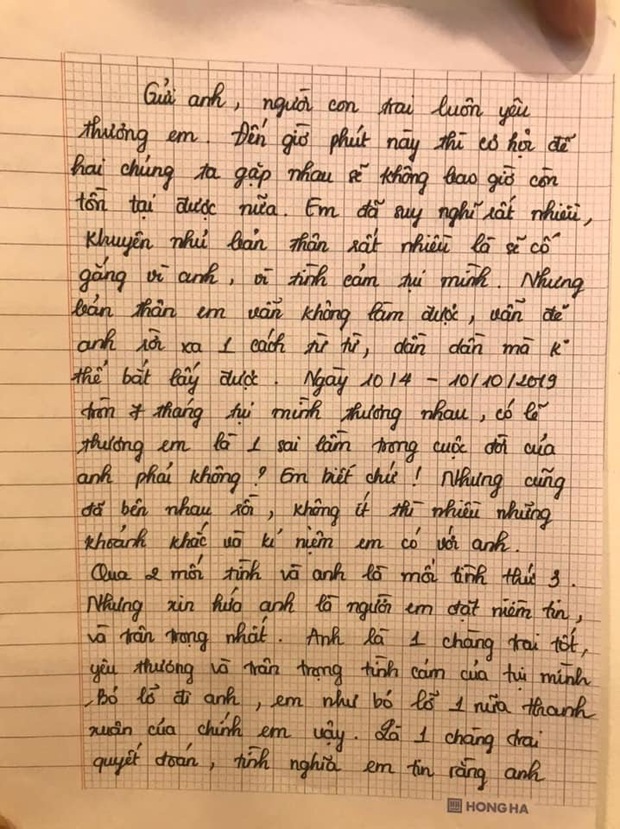 Gửi anh, người con trai luôn yêu
thương em. Đến giờ phút này thì cơ hội để
hai chúng ta gặp nhau sẽ không bao giờ còn
tồn tại được nữa. Em đã suy nghĩ rất nhiều,
khuyên nhủ bản thân rất nhiều là sẽ cố
gắng vì anh, vì tình cảm tụi mình. Nhưng
bản thân em vẫn không làm được, vẫn để
anh rời xa 1 cách từ từ, dần dần mà k
thể bắt lấy được. Ngày 10/4 - 10/10/2019
tròn 7 tháng tụi mình thương nhau, có lẽ
thương em là 1 sai lầm trong cuộc đời của
anh phải không? Em biết chứ! Nhưng cũng
đã bên nhau rồi, không ít thì nhiều những
khoảnh khắc và kí niệm em có với anh.
Qua 2 mối tình và anh là mối tình thứ 3.
Nhưng xin hứa anh là người em đặt niềm tin,
và trân trọng nhất. Anh là 1 chàng trai tốt,
yêu thương và trân trọng tình cảm của tụi mình
. Bỏ lỡ đi anh, em như bỏ lỡ 1 nữa thanh
xuân của chính em vậy. Là 1 chàng trai
quyết đoán, tình nghĩa em tin rằng anh
HONG HA